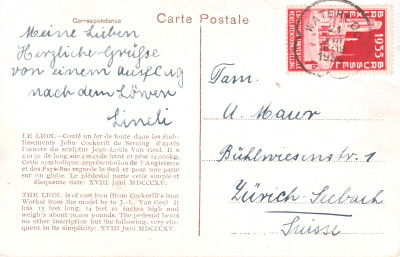 Correspondance
Carte Postale
Meine Lieben
Herzliche Grüsse
von einem Ausflug
nach dem Löwen
LE LION. — Coulé en fer de fonte dans les établissements
John Cockerill de Seraing d'après
l'œuvre du sculpteur Jean-Louis Van Geel. Il a
4 m 50 de long sur 4 m 45 de haut et pèse 28,000 kg.
Cette symbolique représentation de l'Angleterre
et des Pays-Bas regarde le Sud et pose une patte
sur un globe. Le piédestal porte cette simple et
éloquente date: XVIII Juni MDCCCXV.
THE LION, is of cast iron (from Cockerill's iron
Works) from the model by to J.-L. Van Geel It
has 15 feet long, 14 feet 10 inches high and
weigh's about 70,000 pounds. The pedestal bears
no other inscription but the following, very eloquent
in its simplicity: XVIII Juni MDCCCXV.
WATERLOO
1935
Fam.
A. Maur
Bühlwiesenstr.
Zürich-Seebach
Suisse